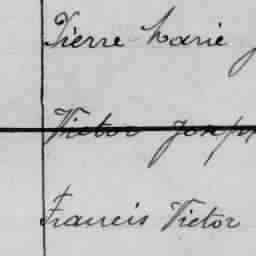 Pierre Marie
Victor Joseph
Francis Victor